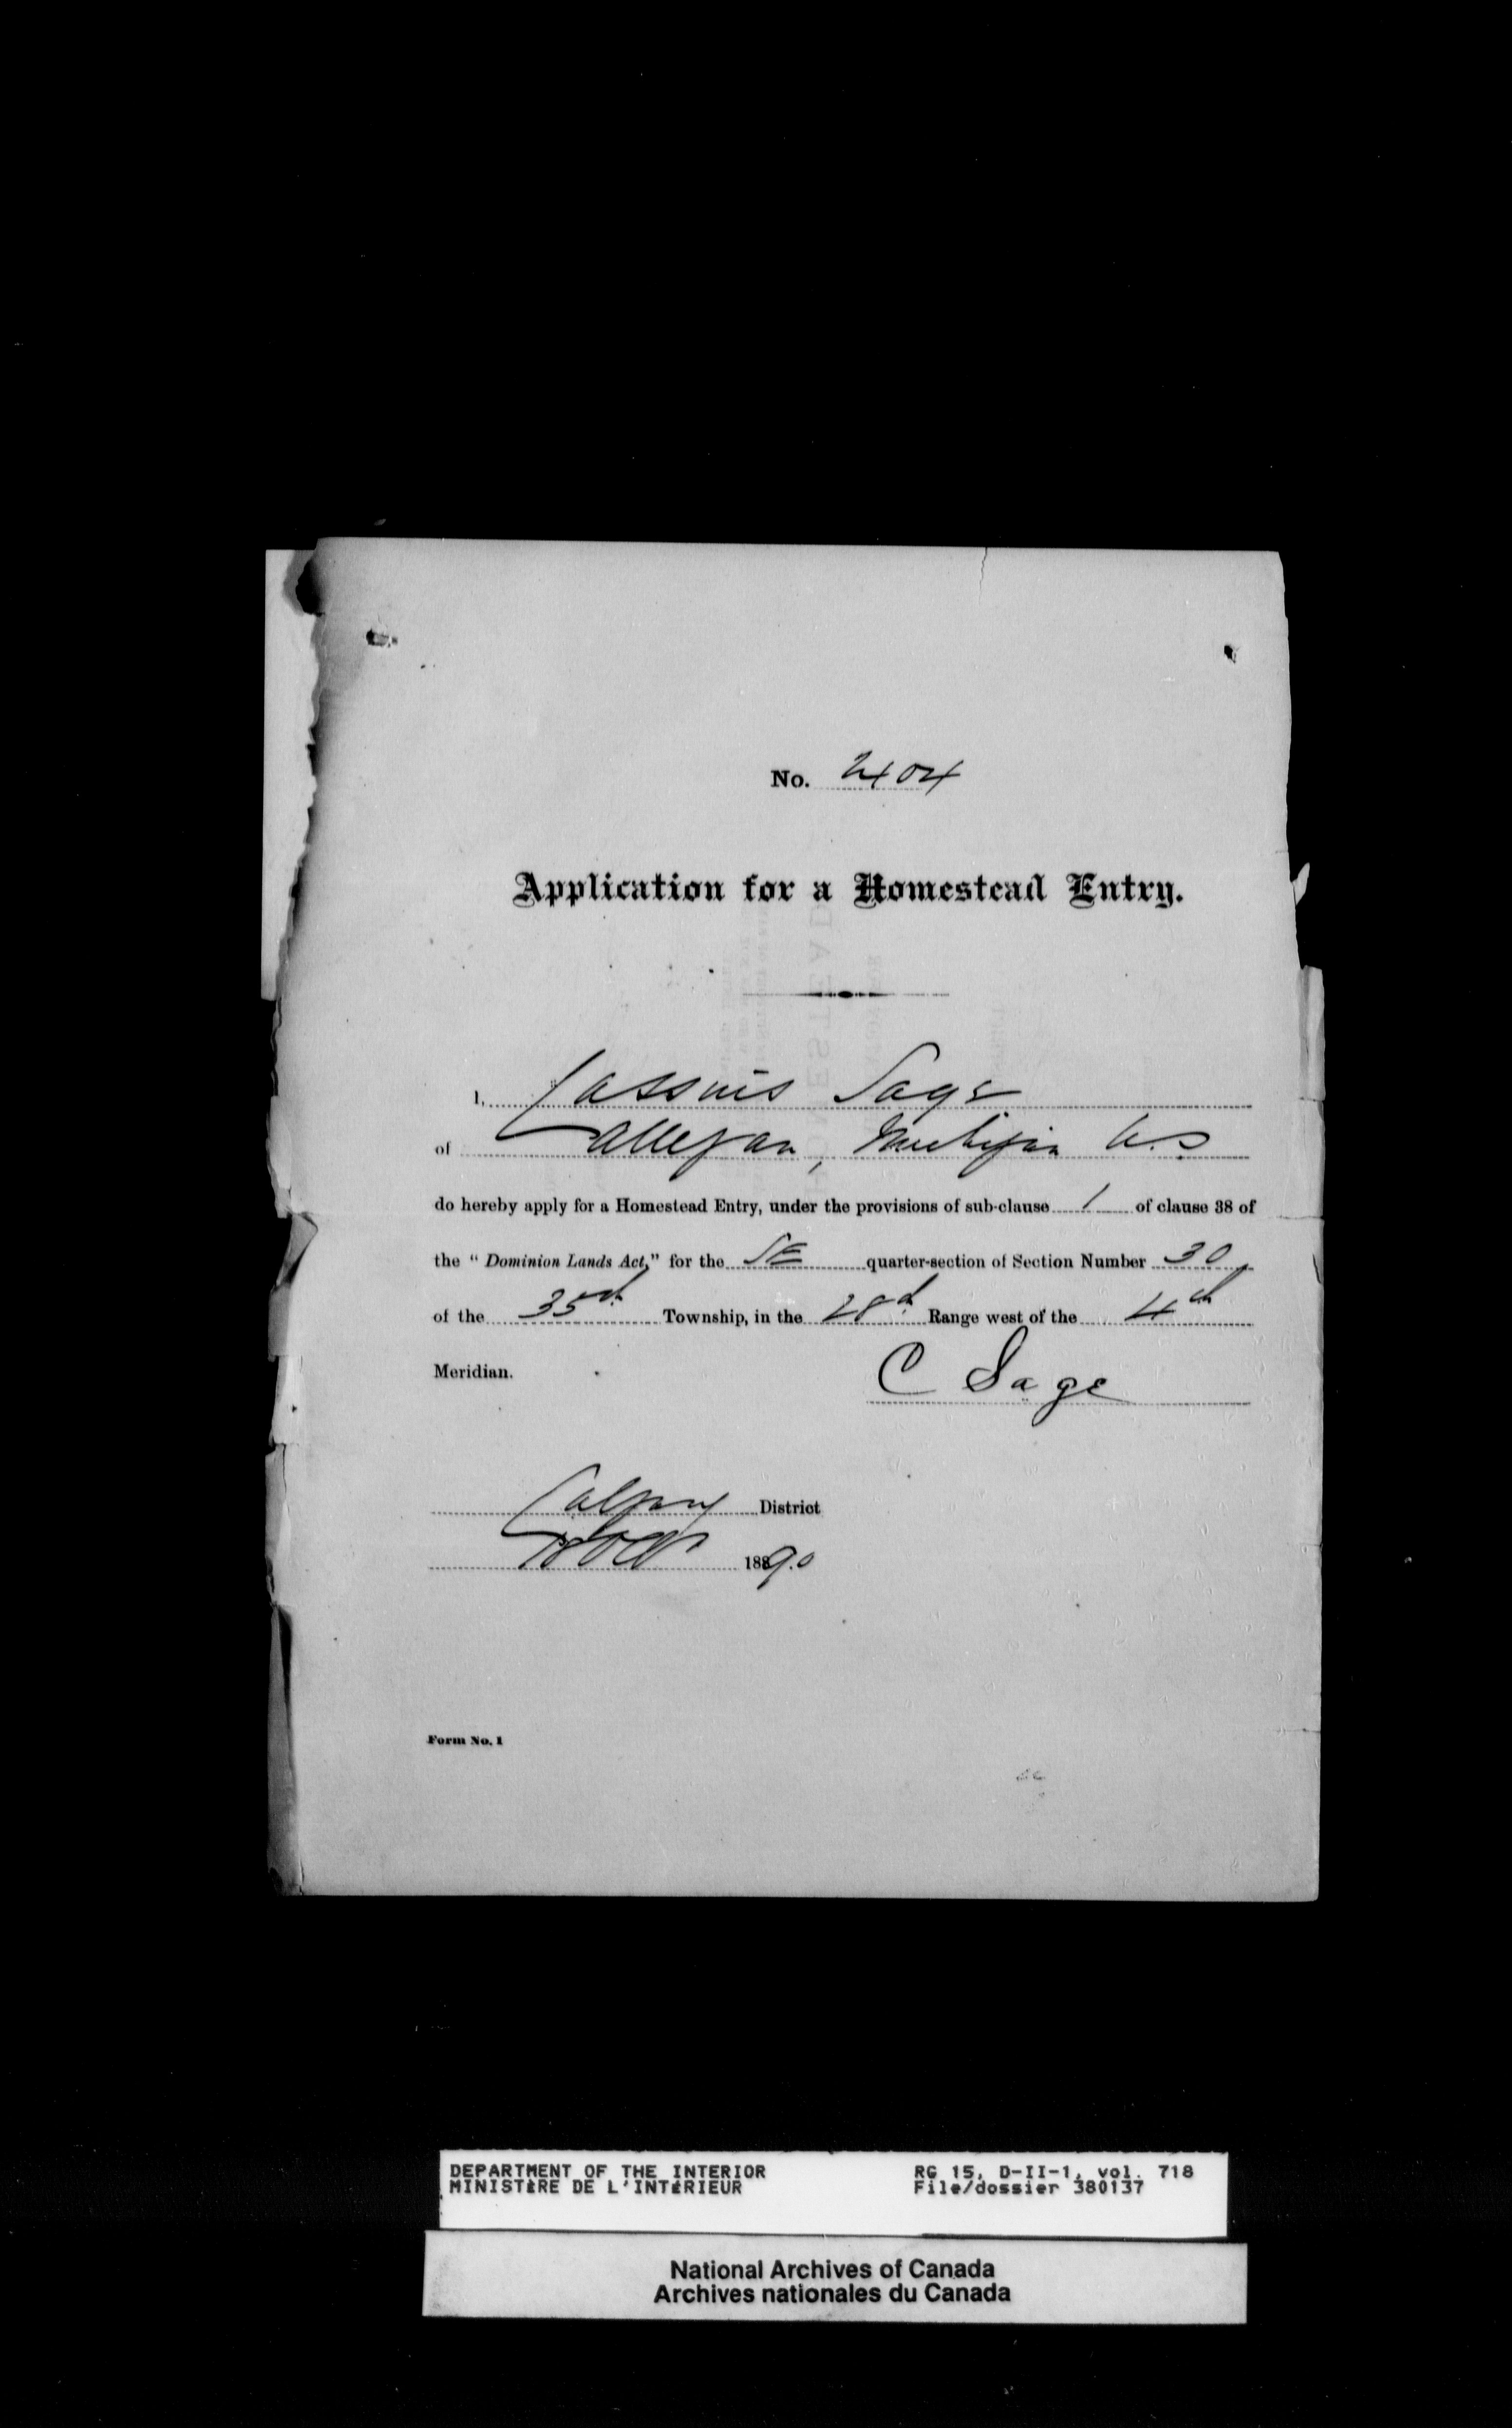 No. 2404
Application for a Homestead Entry.
I, Cassius Sage
of Allegan, Michigan U.S
do hereby apply for a Homestead Entry, under the provisions of sub-clause 1 of clause 38 of
the " Dominion Lands Act," for the SE quarter-section of Section Number 30
of the 35th Township, in the 28th Range west of the 4th
Meridian.
C Sage
Calgary District
Oct 1890
Form No. 1
DEPARTMENT OF THE INTERIOR RG 15, D-II-1, vol. 718
MINISTÈRE DE L'INTÉRIEUR File/dossier 380137
National Archives of Canada
Archives nationales du Canada